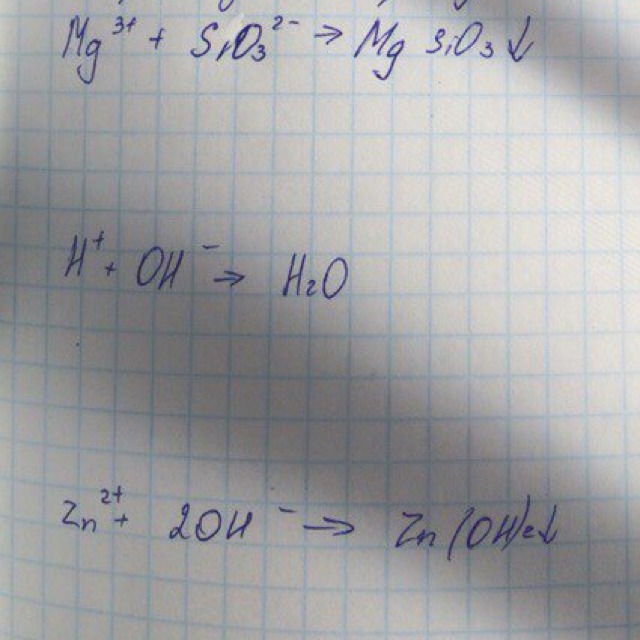 Mg³⁺ + SiO₃²⁻ → Mg SiO₃↓
H⁺ + OH⁻ → H₂O
Zn²⁺ + 2OH⁻ → Zn(OH)₂↓